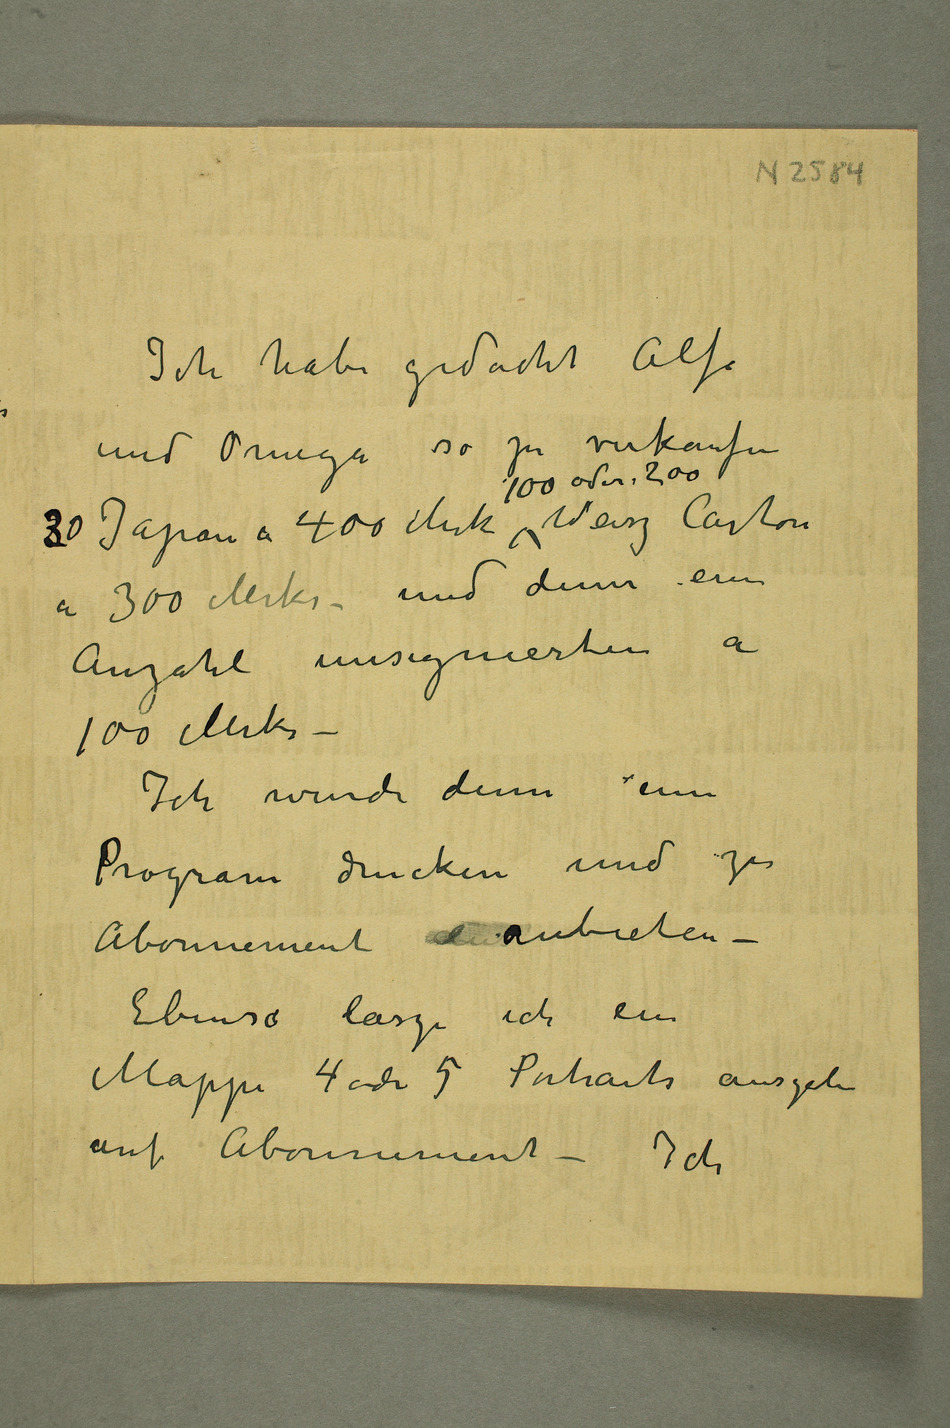 N 2584
Ich habe gedacht Alfa
und Omega so zu verkaufen
100 oder 200
30 Japan a 400 Mrk Weisz Carton
a 300 Mrks – und denn ein
Anzahl unsignierten a
100 Mrks –
Ich wurde denn ein
Program drucken und zu
Abonnement anbieten –
Ebenso lasze ich ein
Mappe 4 odr 5 Portraits ausgeben
auf Abonnement – Ich